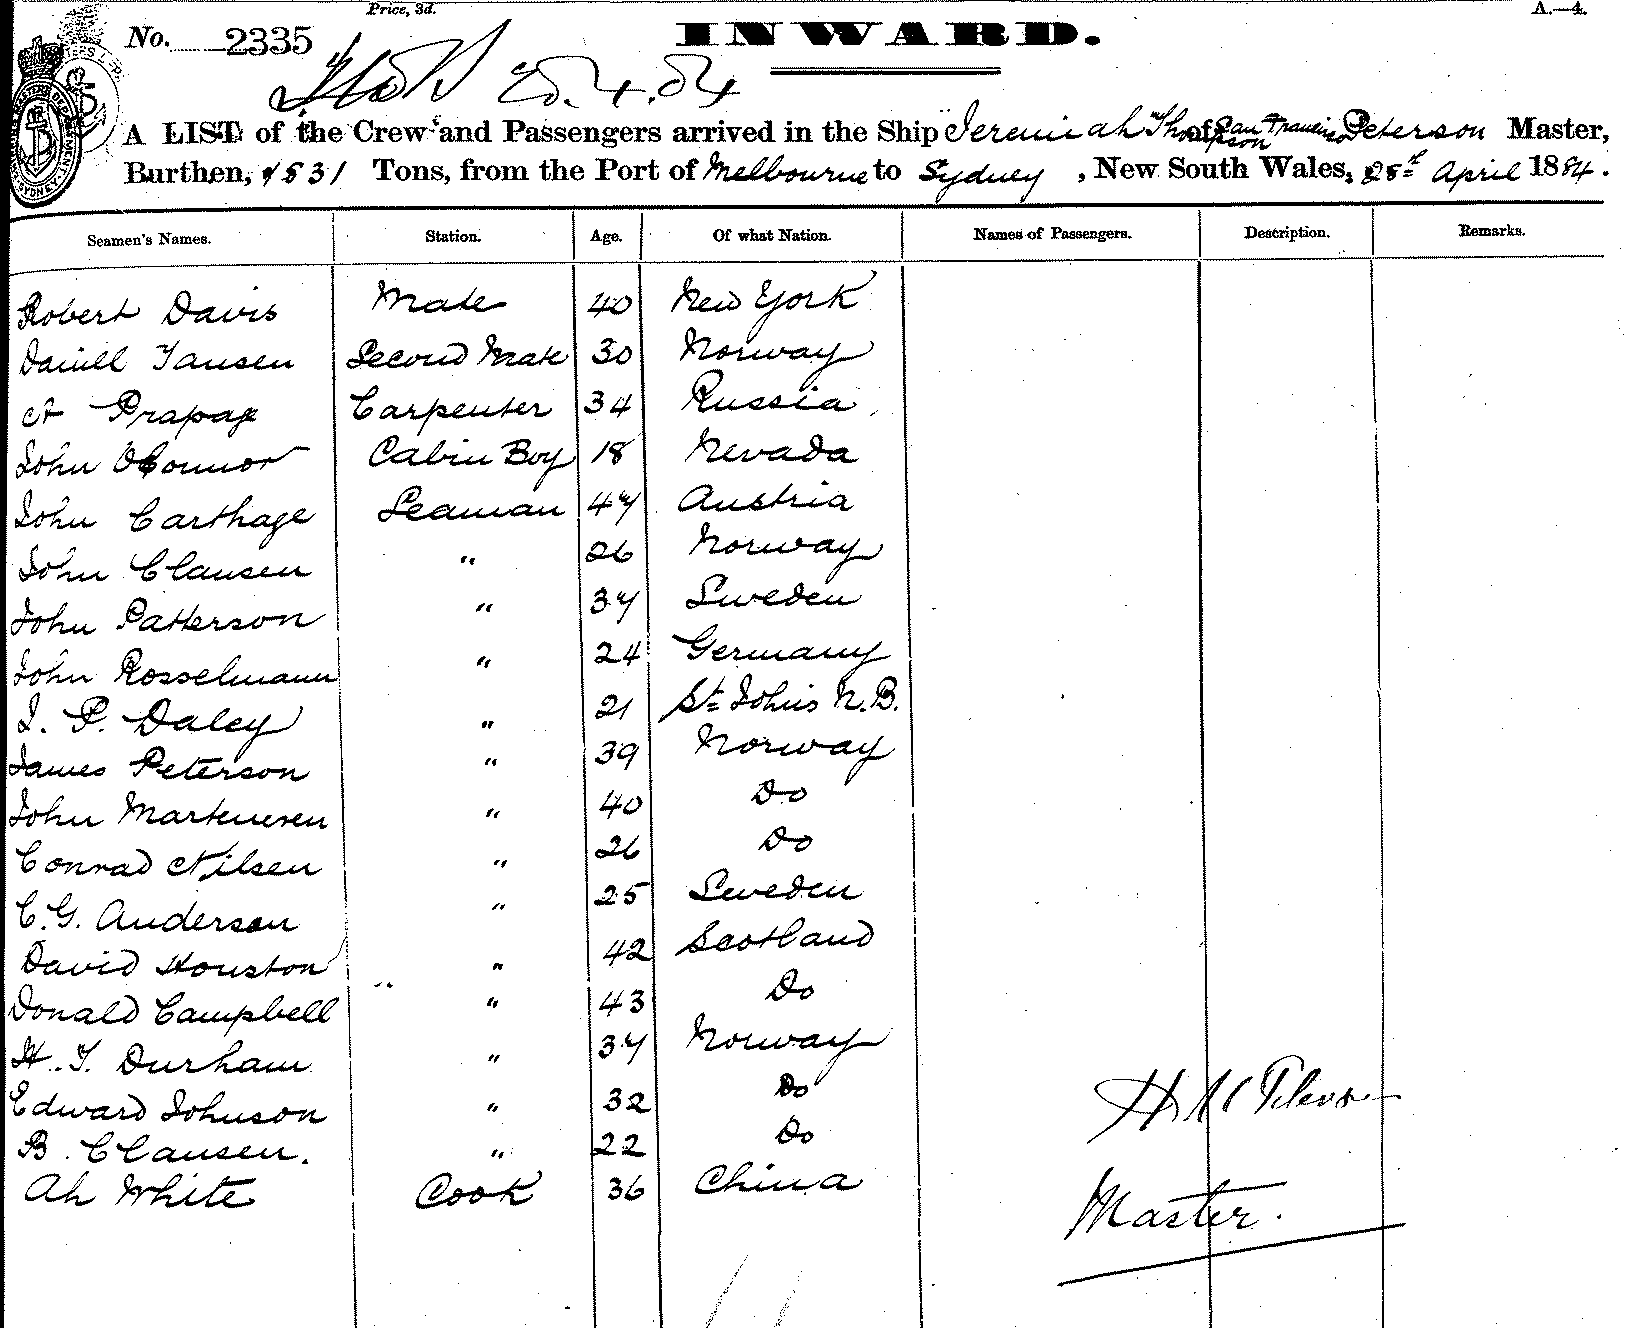 Price, 3d.
A.—4.
No. 2335
INWARD.
A LIST of the Crew and Passengers arrived in the Ship Jeremiah Thompson of San Francisco Peterson Master,
Burthen, 1831 Tons, from the Port of Melbourne to Sydney, New South Wales, 25th April 1884.
Seamen's Names. Station. Age. Of what Nation. Names of Passengers. Description. Remarks.
Robert Davis Mate 40 New York
Daniell Jansen Second Mate 30 Norway
A Prapag Carpenter 34 Russia
John O'Connor Cabin Boy 18 Nevada
John Carthage Seaman 47 Austria
John Clausen " 26 Norway
John Patterson " 37 Sweden
John Rosselmann " 24 Germany
J. P. Daley " 21 St Johns N.B.
James Peterson " 39 Norway
John Martenesen " 40 Do
Conrad Nilsen " 26 Do
C. G. Anderson " 25 Sweden
David Houston " 42 Scotland
Donald Campbell " 43 Do
H. J. Durham " 37 Norway
Edward Johnson " 32 Do
B. Clausen. " 22 Do
Ah White Cook 36 China
Master.